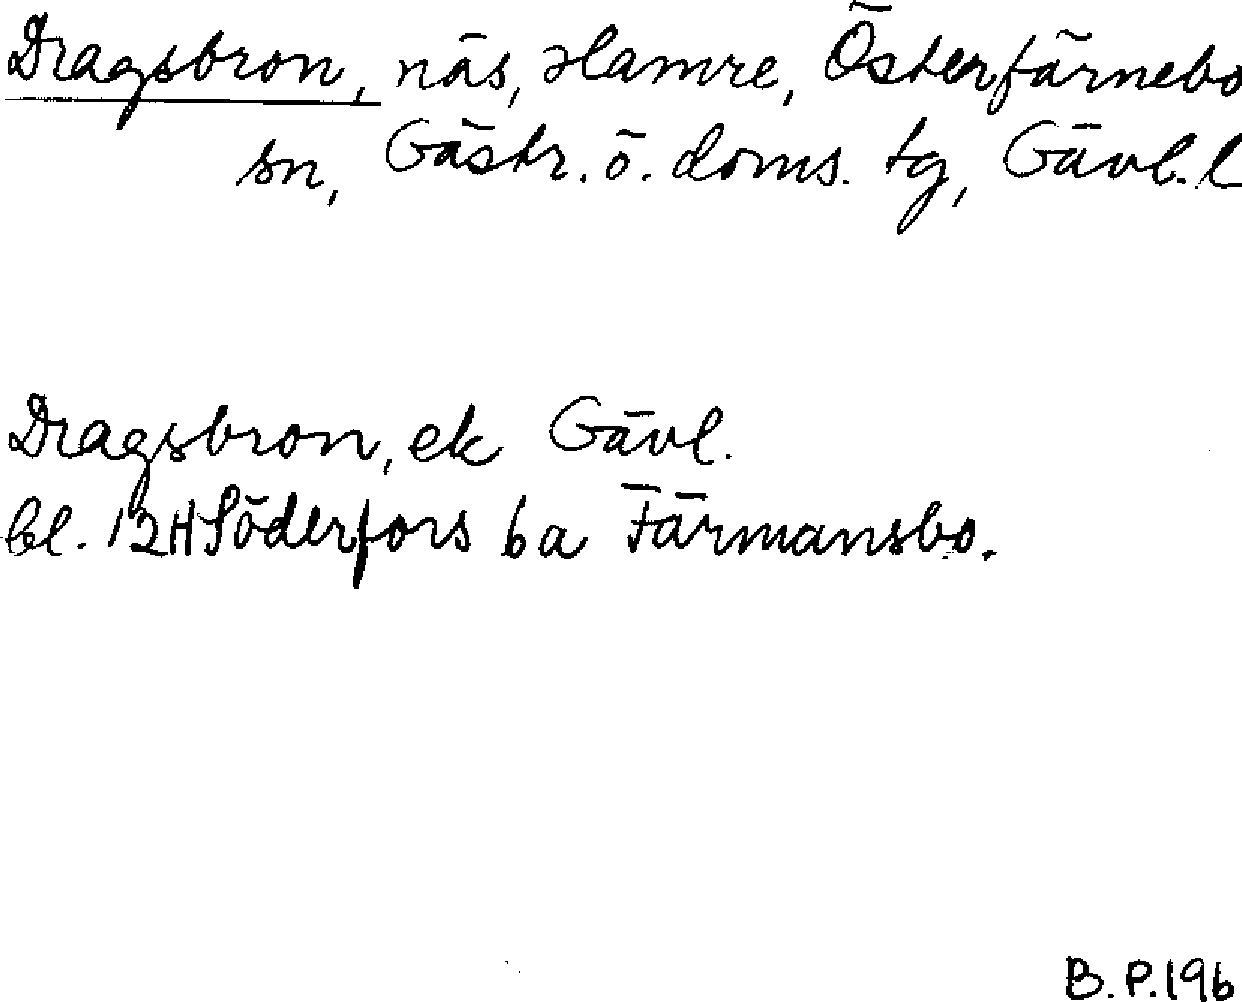 Dragsbron, näs, Hamre, Österfärnebo
sn, Gästr. ö. doms. tg, Gävl. l
Dragsbron, ek Gävl.
bl. 12H Söderfors 6a Färmansbo.
B. P. 196